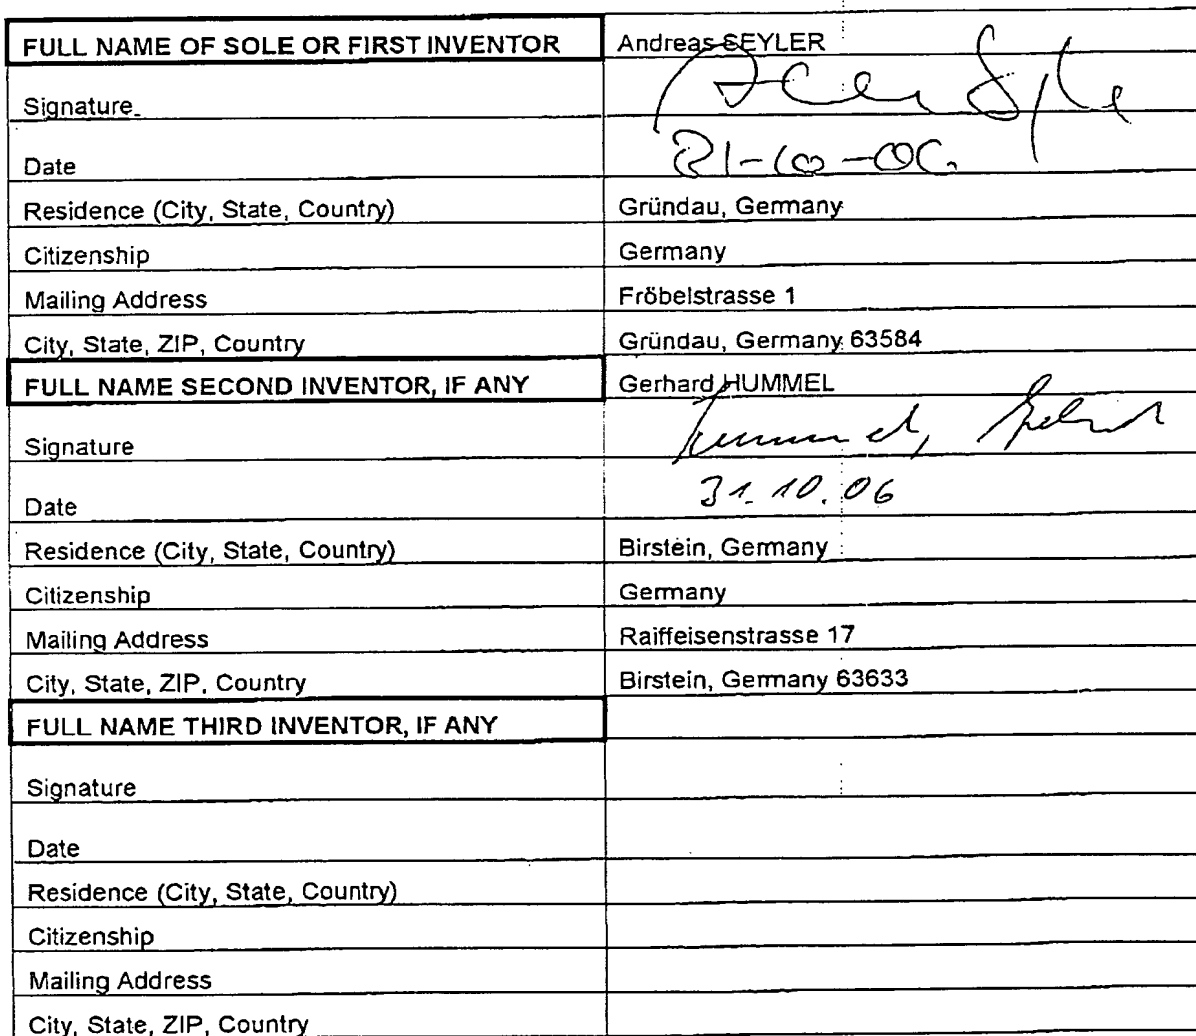 FULL NAME OF SOLE OR FIRST INVENTOR Andreas SEYLER
Signature
Date
Residence (City, State, Country) Gründau, Germany
Citizenship Germany
Mailing Address Fröbelstrasse 1
City, State, ZIP, Country Gründau, Germany 63584
FULL NAME SECOND INVENTOR, IF ANY Gerhard HUMMEL
Signature
Date 31.10.06
Residence (City, State, Country) Birstein, Germany
Citizenship Germany
Mailing Address Raiffeisenstrasse 17
City, State, ZIP, Country Birstein, Germany 63633
FULL NAME THIRD INVENTOR, IF ANY
Signature
Date
Residence (City, State, Country)
Citizenship
Mailing Address
City, State, ZIP, Country